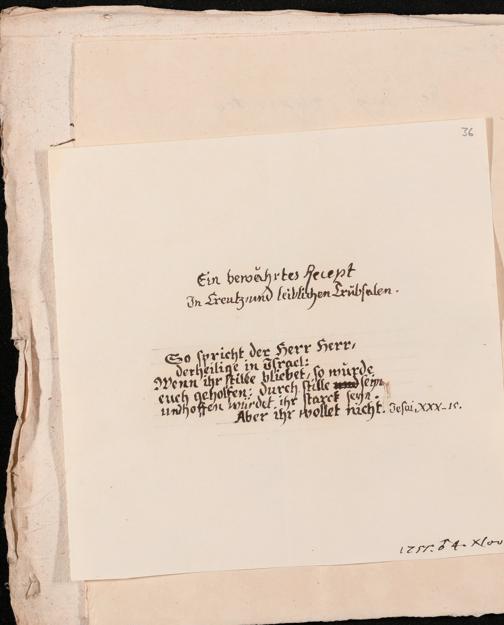 36
Ein bewährtes Recept
In Creutz und leiblichen Trübsalen.
So spricht der Herr Herr,
der heilige in Israel:
Wenn ihr stille bliebet, so würde
euch geholfen: durch stille seÿn
und hoffen würdet ihr starck seÿn.
Aber ihr wollet nicht. Jesai XXX-15.
1755. 4.